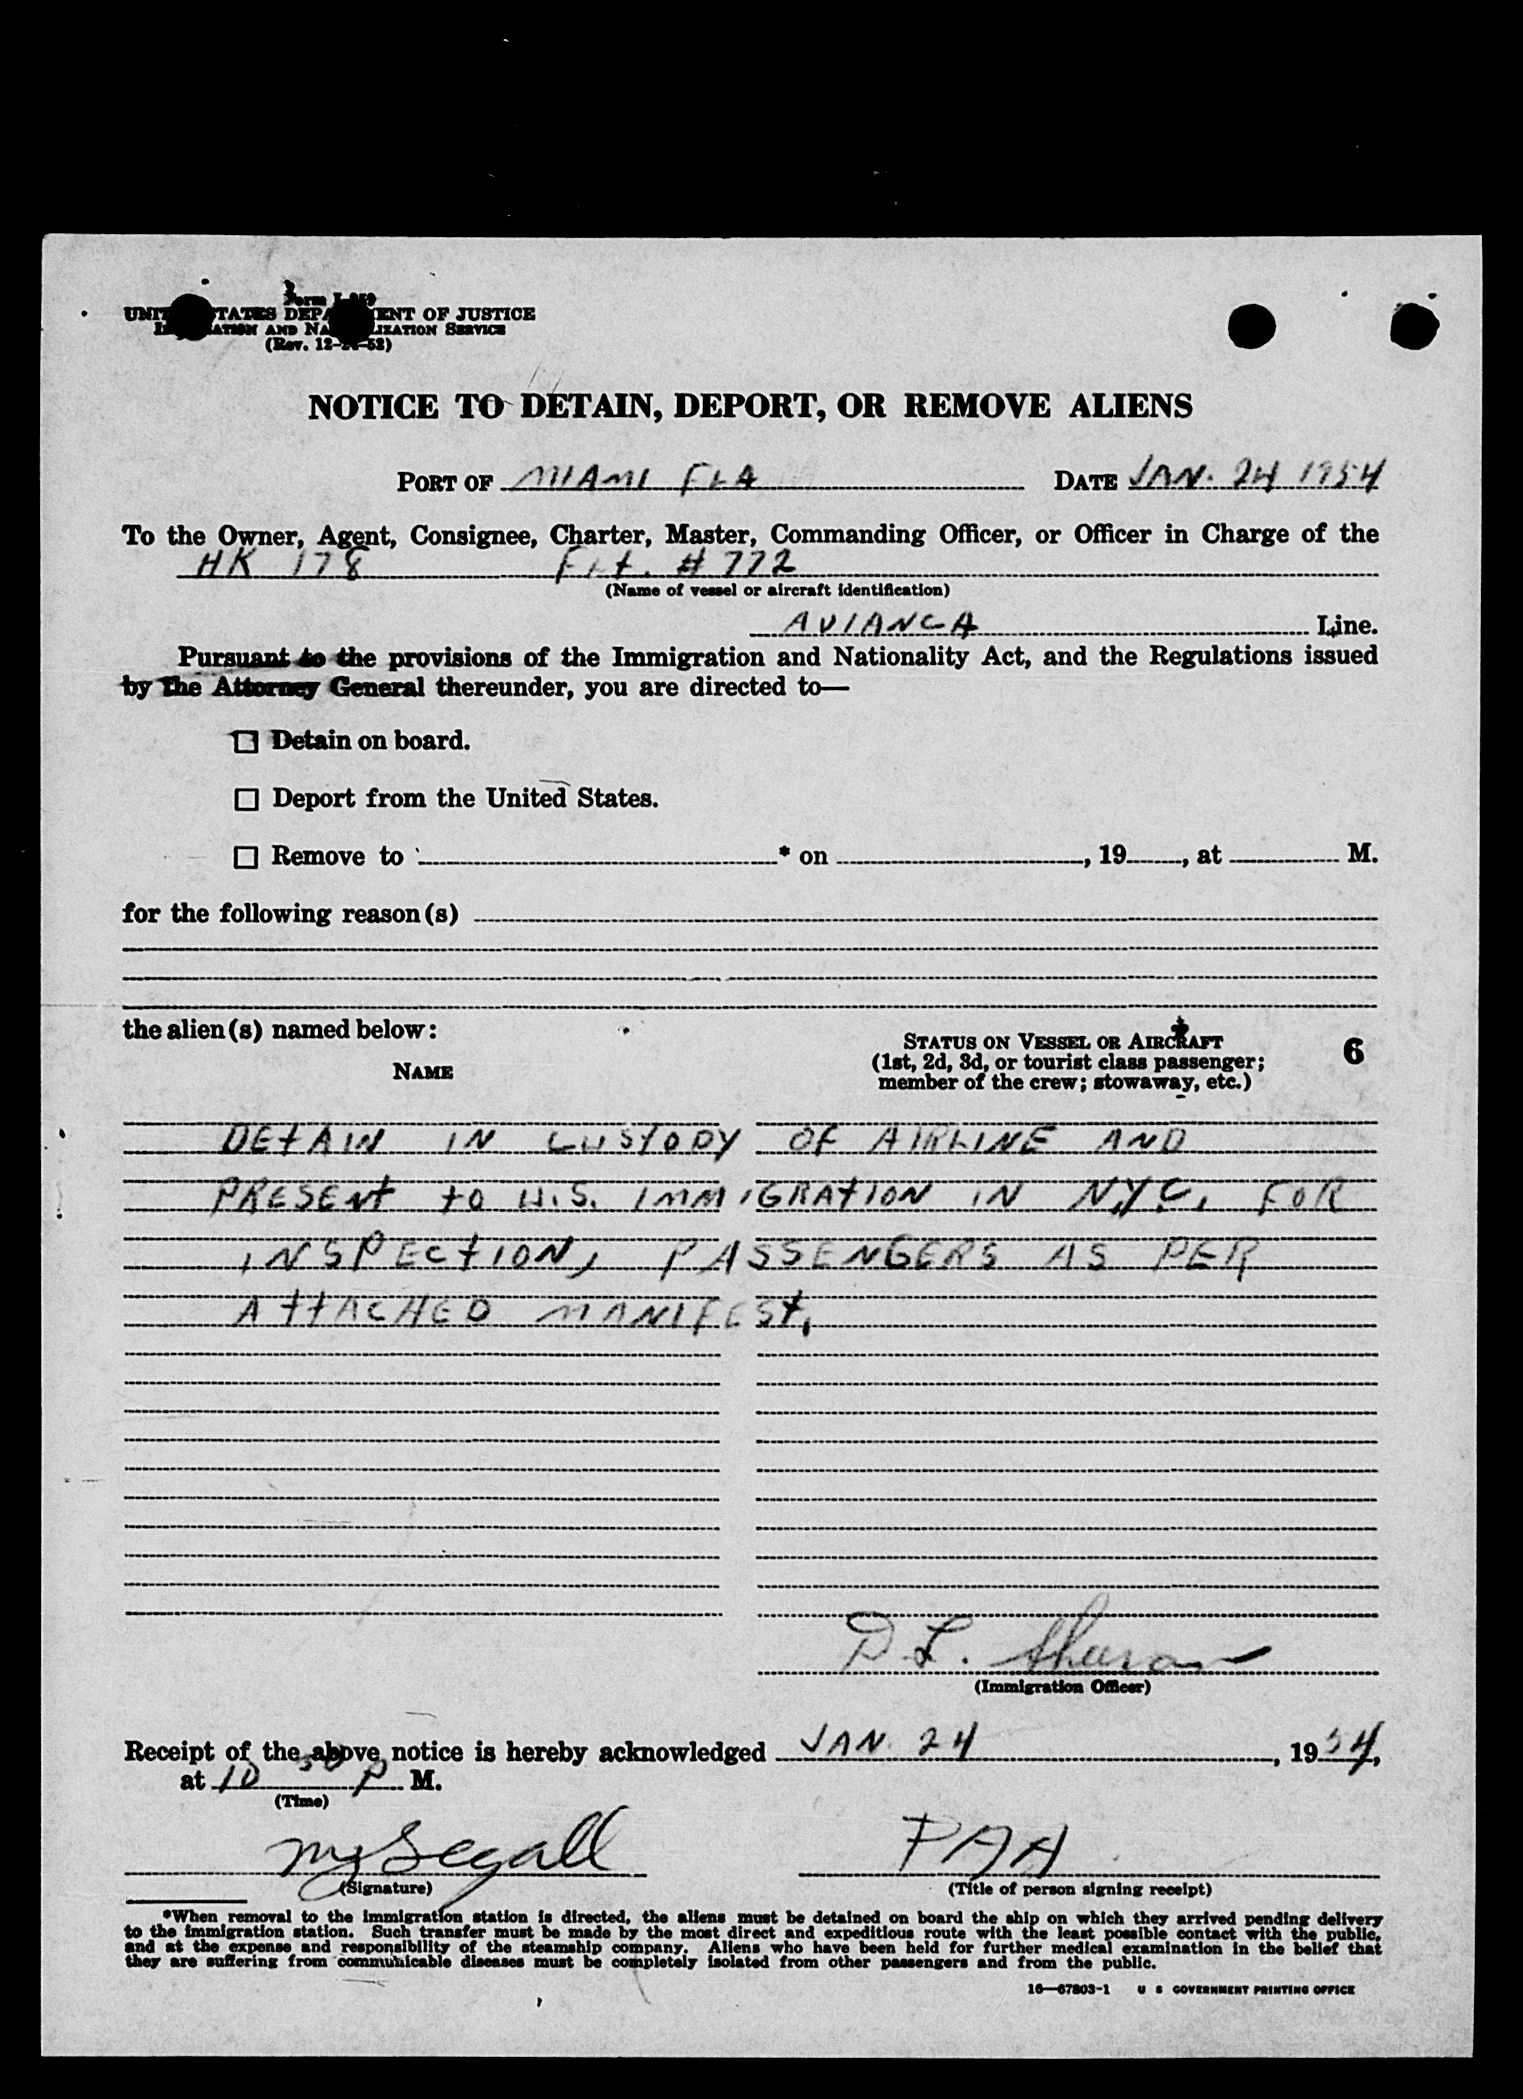 Form I-259
UNITED STATES DEPARTMENT OF JUSTICE
IMMIGRATION AND NATURALIZATION SERVICE
(Rev. 12-24-52)
NOTICE TO DETAIN, DEPORT, OR REMOVE ALIENS
PORT OF MIAMI FLA DATE JAN. 24 1954
To the Owner, Agent, Consignee, Charter, Master, Commanding Officer, or Officer in Charge of the
HK 178 FLT. # 772
(Name of vessel or aircraft identification)
AVIANCA Line.
Pursuant to the provisions of the Immigration and Nationality Act, and the Regulations issued
by the Attorney General thereunder, you are directed to—
☐ Detain on board.
☐ Deport from the United States.
☐ Remove to * on , 19 , at M.
for the following reason(s)
the alien(s) named below:
NAME
STATUS ON VESSEL OR AIRCRAFT
(1st, 2d, 3d, or tourist class passenger;
member of the crew; stowaway, etc.)
6
DETAIN IN CUSTODY OF AIRLINE AND
PRESENT TO U.S. IMMIGRATION IN N.Y.C. FOR
INSPECTION, PASSENGERS AS PER
ATTACHED MANIFEST.
D. L.
(Immigration Officer)
Receipt of the above notice is hereby acknowledged JAN 24, 1954,
at 10 30 P M.
(Time)
Segall PAA
(Signature) (Title of person signing receipt)
*When removal to the immigration station is directed, the aliens must be detained on board the ship on which they arrived pending delivery
to the immigration station. Such transfer must be made by the most direct and expeditious route with the least possible contact with the public,
and at the expense and responsibility of the steamship company. Aliens who have been held for further medical examination in the belief that
they are suffering from communicable diseases must be completely isolated from other passengers and from the public.
16—67803-1 U S GOVERNMENT PRINTING OFFICE